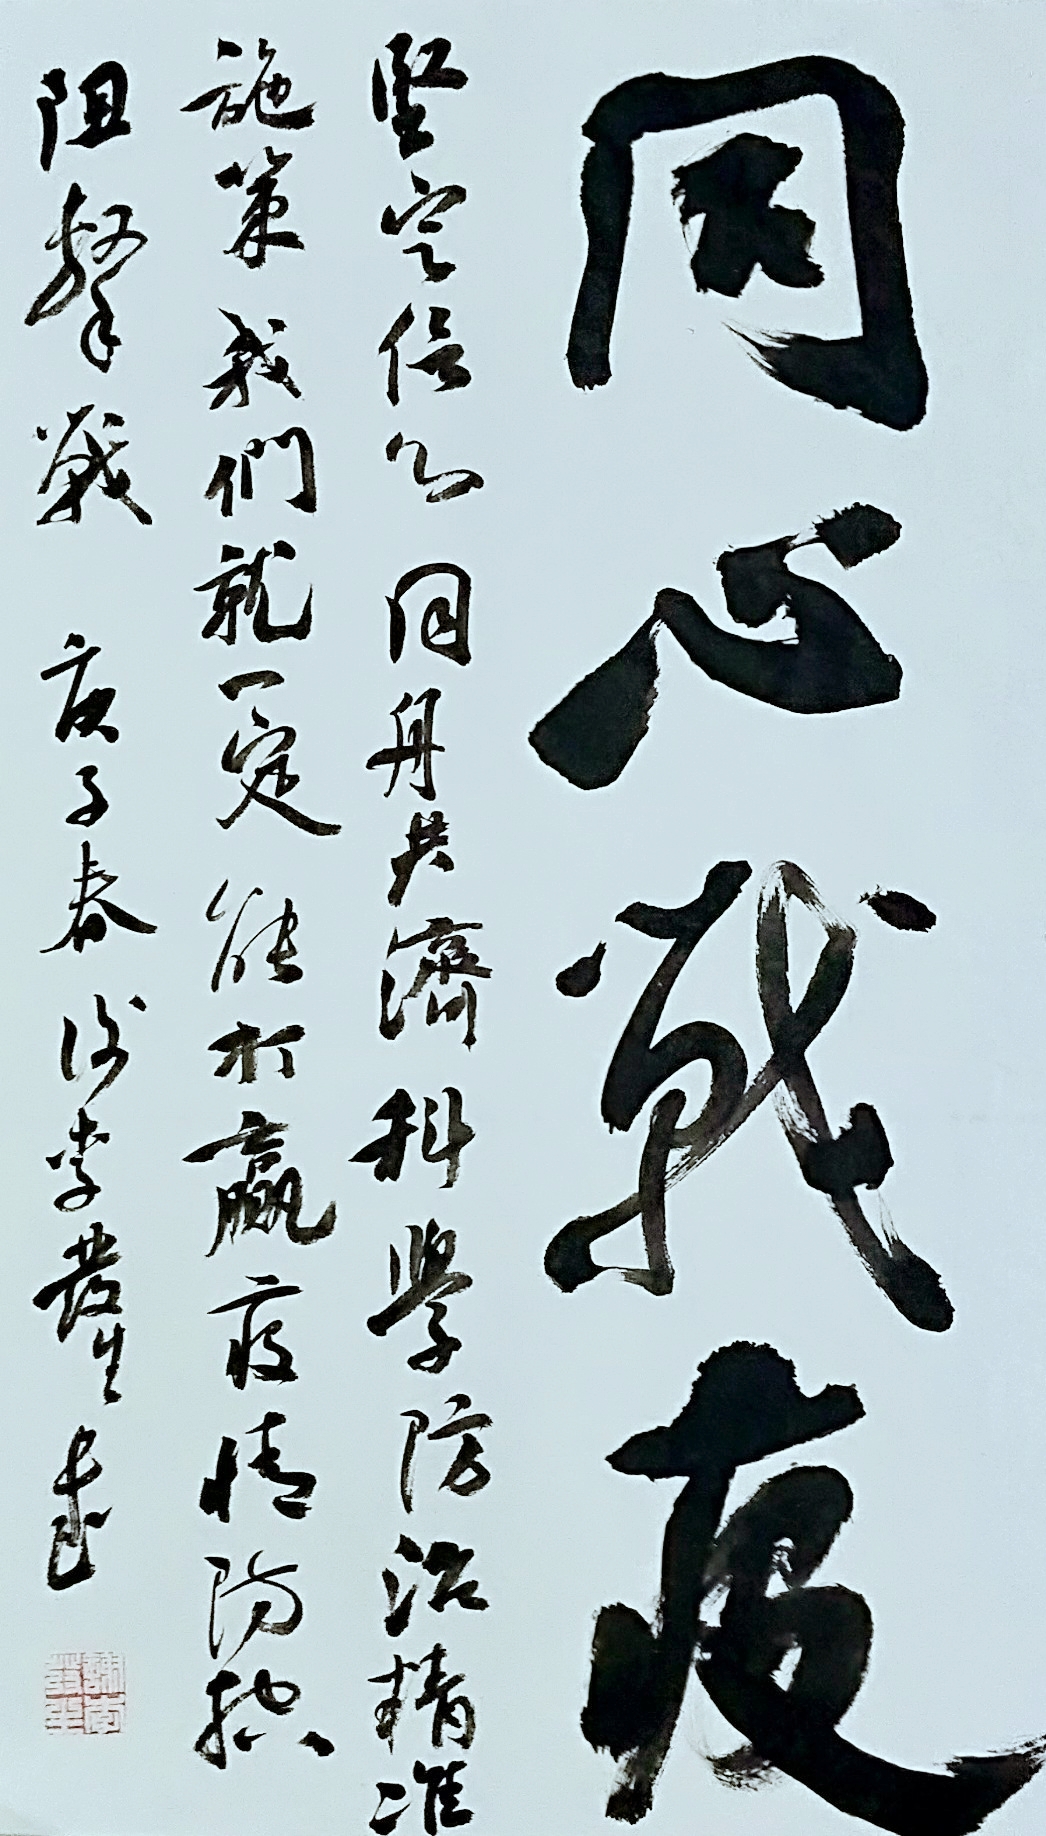 同心戰疫
堅定信心同舟共濟科學防治精准
施策我們就一定能打贏疫情防控
阻擊戰 庚子春 謝李發生書